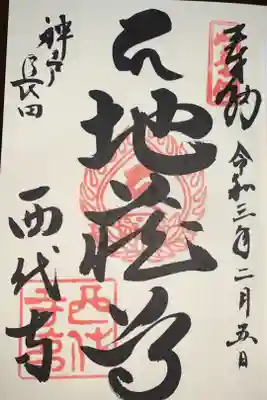 奉納
令和三年二月五日
石地蔵尊
神戸
長田
西代寺
西代
寺印